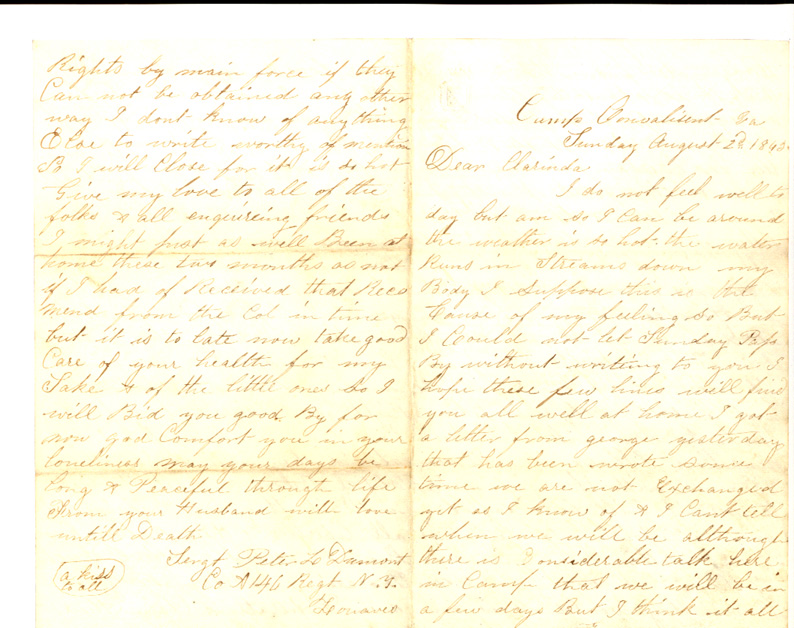 Camp Convalisent Va
Sunday August 2d 1863
Dear Clarinda
I do not feel well to
day but am so I Can be around
the weather is so hot the water
Runs in Streams down my
Body I Suppose this is the
Cause of my feeling so But
I Could not let Sunday Pass
By without writing to you I
hope these few lines will find
you all well at home I got
a letter from george yesterday
that has been wrote some
time we are not Exchanged
yet as I know of & I Cant tell
when we will be although
there is Considerable talk here
in Camp that we will be in
a few days But I think it all
Rights by main force if they
Can not be obtained any other
way I dont know of anything
Else to write worthy of mention
So I will Close for it is so hot
Give my love to all of the
folks & all enquireing friends
I might just as well Been at
home these two months as not
if I had of Received that Reco
mend from the Col in time
but it is to late now take good
Care of your health for my
Sake & of the little ones So I
will Bid you good By for
now god Comfort you in your
loneliness may your days be
long & Peaceful through life
From your Husband with love
untill Death
Sergt Peter L Dumont
Co A 146 Regt N.Y.
a kiss
to all